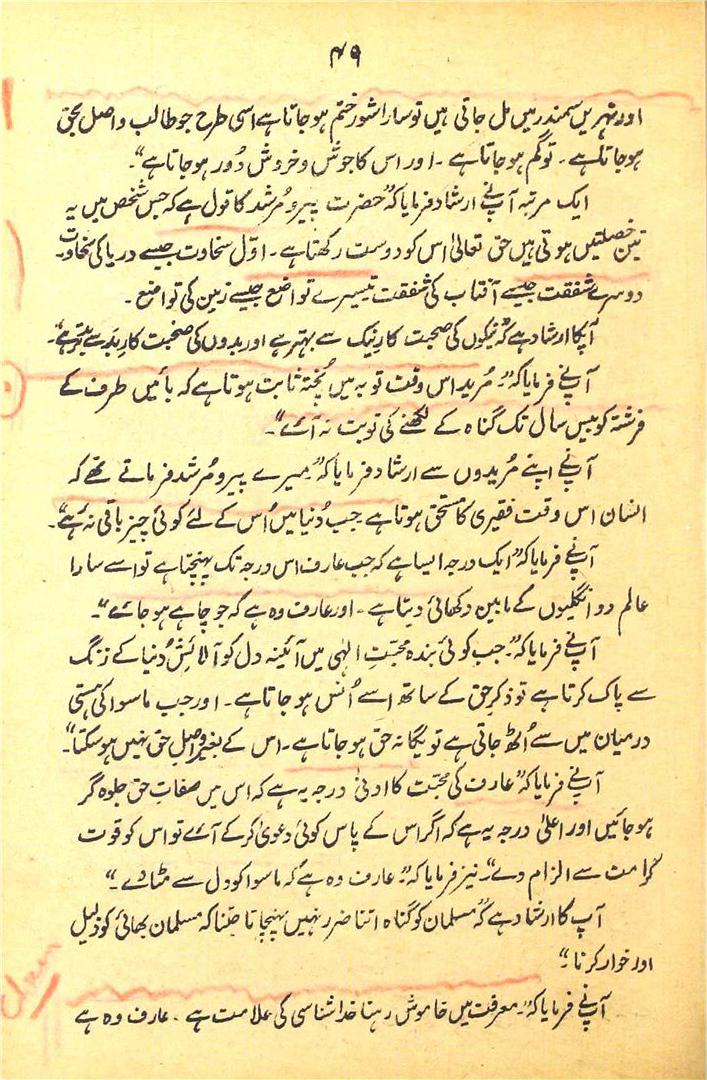 ۴۹
اور نہریں سمندر میں مل جاتی ہیں تو سارا شور ختم ہو جاتا ہے اسی طرح جو طالب واصل بحق
ہو جاتا ہے۔ تو گم ہو جاتا ہے۔ اور اس کا جوش و خروش دُور ہو جاتا ہے“۔
ایک مرتبہ آپ نے ارشاد فرمایا کہ ”حضرت پیر و مُرشد کا قول ہے کہ جس شخص میں یہ
تین خصلتیں ہوتی ہیں حق تعالیٰ اس کو دوست رکھتا ہے۔ اوّل سخاوت جیسے دریا کی سخاوت۔
دوسرے شفقت جیسے آفتاب کی شفقت تیسرے تواضع جیسے زمین کی تواضع۔
آپکا ارشاد ہے کہ ”نیکوں کی صحبت کارِ نیک سے بہتر ہے اور بدوں کی صحبت کارِ بَد سے بدتر ہے“۔
آپ نے فرمایا کہ ”۔ مُرید اس وقت توبہ میں پُختہ ثابت ہوتا ہے کہ بائیں طرف کے
فرشتہ کو بیس سال تک گناہ کے لکھنے کی نوبت نہ آئے“۔
آپ نے اپنے مُریدوں سے ارشاد فرمایا کہ ”میرے پیر و مُرشد فرماتے تھے کہ
انسان اس وقت فقیری کا مستحق ہوتا ہے جب دُنیا میں اُس کے لئے کوئی چیز باقی نہ رہے“۔
آپ نے فرمایا کہ ”ایک درجہ ایسا ہے کہ جب عارف اس درجہ تک پہنچتا ہے تو اسے سارا
عالم دو انگلیوں کے مابین دکھائی دیتا ہے۔ اور عارف وہ ہے کہ جو چاہے ہو جائے“۔
آپ نے فرمایا کہ ”۔ جب کوئی بندہ محبّتِ الٰہی میں آئینہ دل کو آلائشِ دُنیا کے زنگ
سے پاک کرتا ہے تو ذکرِ حق کے ساتھ اسے اُنس ہو جاتا ہے۔ اور جب ماسوا کی ہستی
درمیان میں سے اُٹھ جاتی ہے تو یگانہ حق ہو جاتا ہے۔ اس کے بغیر واصلِ حق نہیں ہو سکتا“۔
آپ نے فرمایا کہ ”عارف کی محبّت کا ادنیٰ درجہ یہ ہے کہ اس میں صفاتِ حق جلوہ گر
ہو جائیں اور اعلیٰ درجہ یہ ہے کہ اگر اس کے پاس کوئی دعویٰ کر کے آئے تو اس کو قوت
کرامت سے الزام دے“۔ نیز فرمایا کہ ”۔ عارف وہ ہے کہ ماسوا کو دل سے مٹا دے۔“
آپ کا ارشاد ہے کہ ”مسلمان کو گناہ اتنا ضرر نہیں پہنچاتا جتنا کہ مسلمان بھائی کو ذلیل
اور خوار کرنا۔“
آپ نے فرمایا کہ ”۔ معرفت میں خاموش رہنا خدا شناسی کی علامت ہے۔ عارف وہ ہے